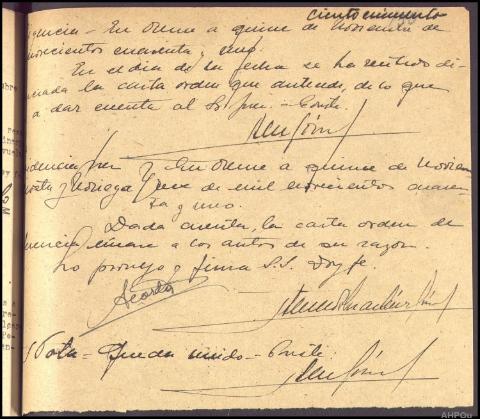 ciento cincuenta
gencia - En Orense a quince de Noviembre de
novecientos cuarenta y uno.
En el dia de la fecha se ha recibido di-
la carta orden que antecede, de lo que
a dar cuenta al Sr Juez. - Conste.
dencia Juez } En Orense a quince de Noviem
y Noriega } bre de mil novecientos cuaren
ta y uno.
Dada cuenta, la carta orden de
únase a los autos de su razon.
Lo proveyo y firma S.S. Doy fe.
Nota - Queda unido - Conste.
AHPOu